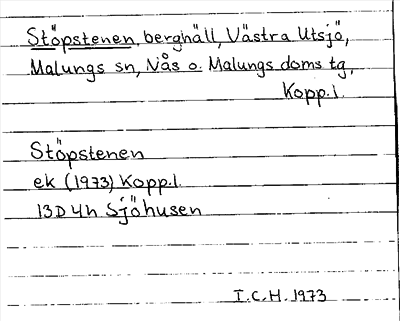 Stöpstenen, berghäll, Västra Utsjö,
Malungs sn, Nås o. Malungs doms tg,
Kopp.l.
Stöpstenen
ek (1973) Kopp.l.
13D 4h Sjöhusen
I.C.H. 1973